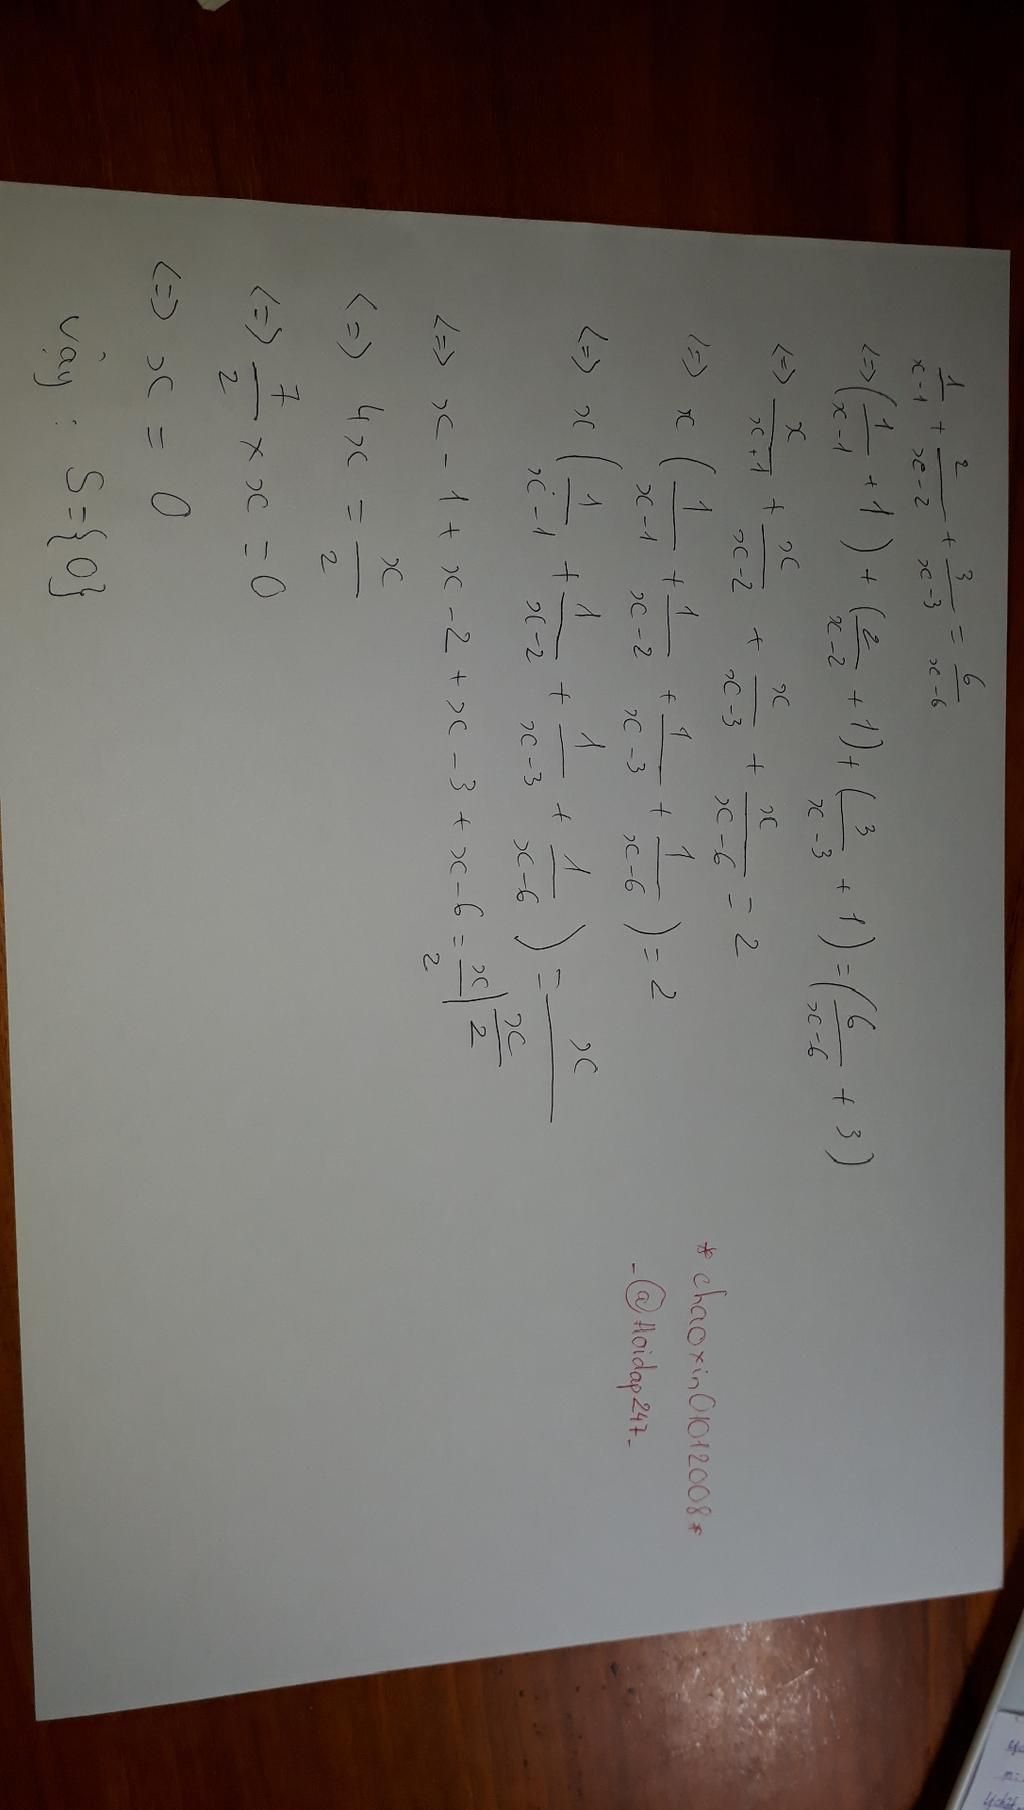 1/(x-1) + 2/(x-2) + 3/(x-3) = 6/(x-6)
<=> (1/(x-1) + 1) + (2/(x-2) + 1) + (3/(x-3) + 1) = (6/(x-6) + 3)
<=> x/(x+1) + x/(x-2) + x/(x-3) + x/(x-6) = 2
<=> x (1/(x-1) + 1/(x-2) + 1/(x-3) + 1/(x-6)) = 2
<=> x (1/(x-1) + 1/(x-2) + 1/(x-3) + 1/(x-6)) = x/(x/2)
<=> x - 1 + x - 2 + x - 3 + x - 6 = x/2
<=> 4x = x/2
<=> 7/2 × x = 0
<=> x = 0
Vậy : S = {0}
*chaoxin01012008*
-@Hoidap247-